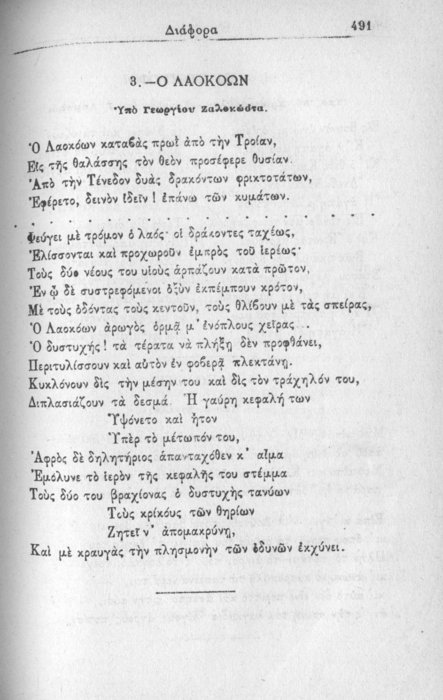 Διάφορα 491
3. — Ο ΛΑΟΚΟΩΝ
Ὑπὸ Γεωργίου Ζαλοκώστα.
Ὁ Λαοκόων καταβὰς πρωῒ ἀπὸ τὴν Τροίαν,
Εἰς τῆς θαλάσσης τὸν θεὸν προσέφερε θυσίαν.
Ἀπὸ τὴν Τένεδον δυὰς δρακόντων φρικτοτάτων,
Ἐφέρετο, δεινὸν ἰδεῖν! ἐπάνω τῶν κυμάτων.
. . . . . . . . . . . . . . . . . . . .
Φεύγει μὲ τρόμον ὁ λαός· οἱ δράκοντες ταχέως,
Ἑλίσσονται καὶ προχωροῦν ἐμπρὸς τοῦ ἱερέως·
Τοὺς δύο νέους του υἱοὺς ἁρπάζουν κατὰ πρῶτον,
Ἐν ᾧ δὲ συστρεφόμενοι ὀξὺν ἐκπέμπουν κρότον,
Μὲ τοὺς ὀδόντας τοὺς κεντοῦν, τοὺς θλίβουν μὲ τὰς σπείρας,
Ὁ Λαοκόων ἀρωγὸς ὁρμᾷ μ' ἐνόπλους χεῖρας...
Ὁ δυστυχής! τὰ τέρατα νὰ πλήξῃ δὲν προφθάνει,
Περιτυλίσσουν καὶ αὐτὸν ἐν φοβερᾷ πλεκτάνῃ.
Κυκλόνουν δὶς τὴν μέσην του καὶ δὶς τὸν τράχηλόν του,
Διπλασιάζουν τὰ δεσμά. Ἡ γαύρη κεφαλή των
Ὑψόνετο καὶ ἦτον
Ὑπὲρ τὸ μέτωπόν του,
Ἀφρὸς δὲ δηλητήριος ἀπανταχόθεν κ' αἷμα
Ἐμόλυνε τὸ ἱερὸν τῆς κεφαλῆς του στέμμα
Τοὺς δύο του βραχίονας ὁ δυστυχὴς τανύων
Τοὺς κρίκους τῶν θηρίων
Ζητεῖ ν' ἀπομακρύνῃ,
Καὶ μὲ κραυγὰς τὴν πλησμονὴν τῶν ὀδυνῶν ἐκχύνει.